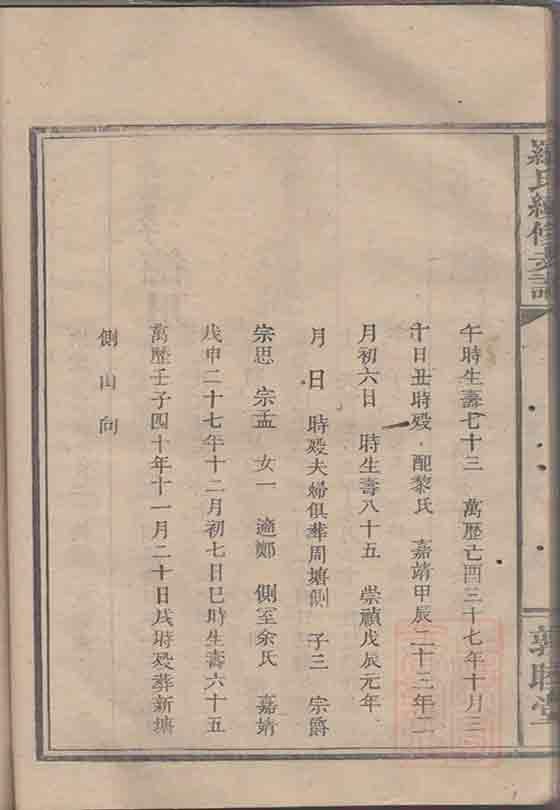 羅氏續修支譜
午時生壽七十三　萬歷己酉三十七年十月三
十日丑時殁　配黎氏　嘉靖甲辰二十三年二
月初六日　時生壽八十五　崇禎戊辰元年
月　日　時殁夫婦俱葬周塘側　子三　宗爵
宗思　宗孟　女一　適鄭　側室余氏　嘉靖
戊申二十七年十二月初七日巳時生壽六十五
萬歷壬子四十年十一月二十日戌時殁葬新塘
側山向
敦睦堂